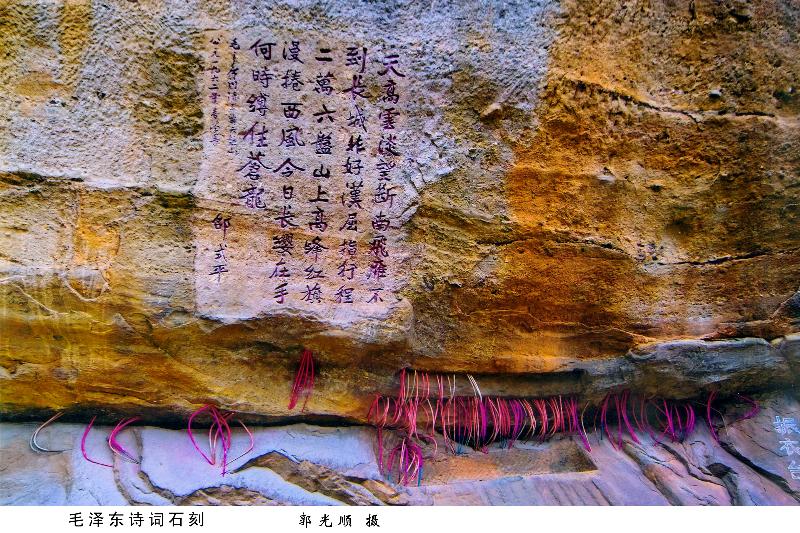 天高雲淡望斷南飛雁不
到長城非好漢屈指行程
二萬六盤山上高峰紅旗
漫捲西風今日長纓在手
何時縛住蒼龍
邵式平
振衣台
毛泽东诗词石刻
郭光顺 摄